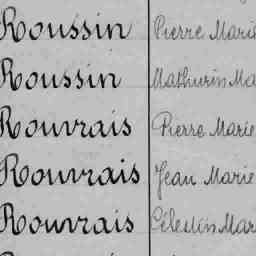 Roussin Pierre Marie
Roussin Mathurin Ma
Rouvrais Pierre Marie
Rouvrais Jean Marie
Rouvrais Célestin Mar